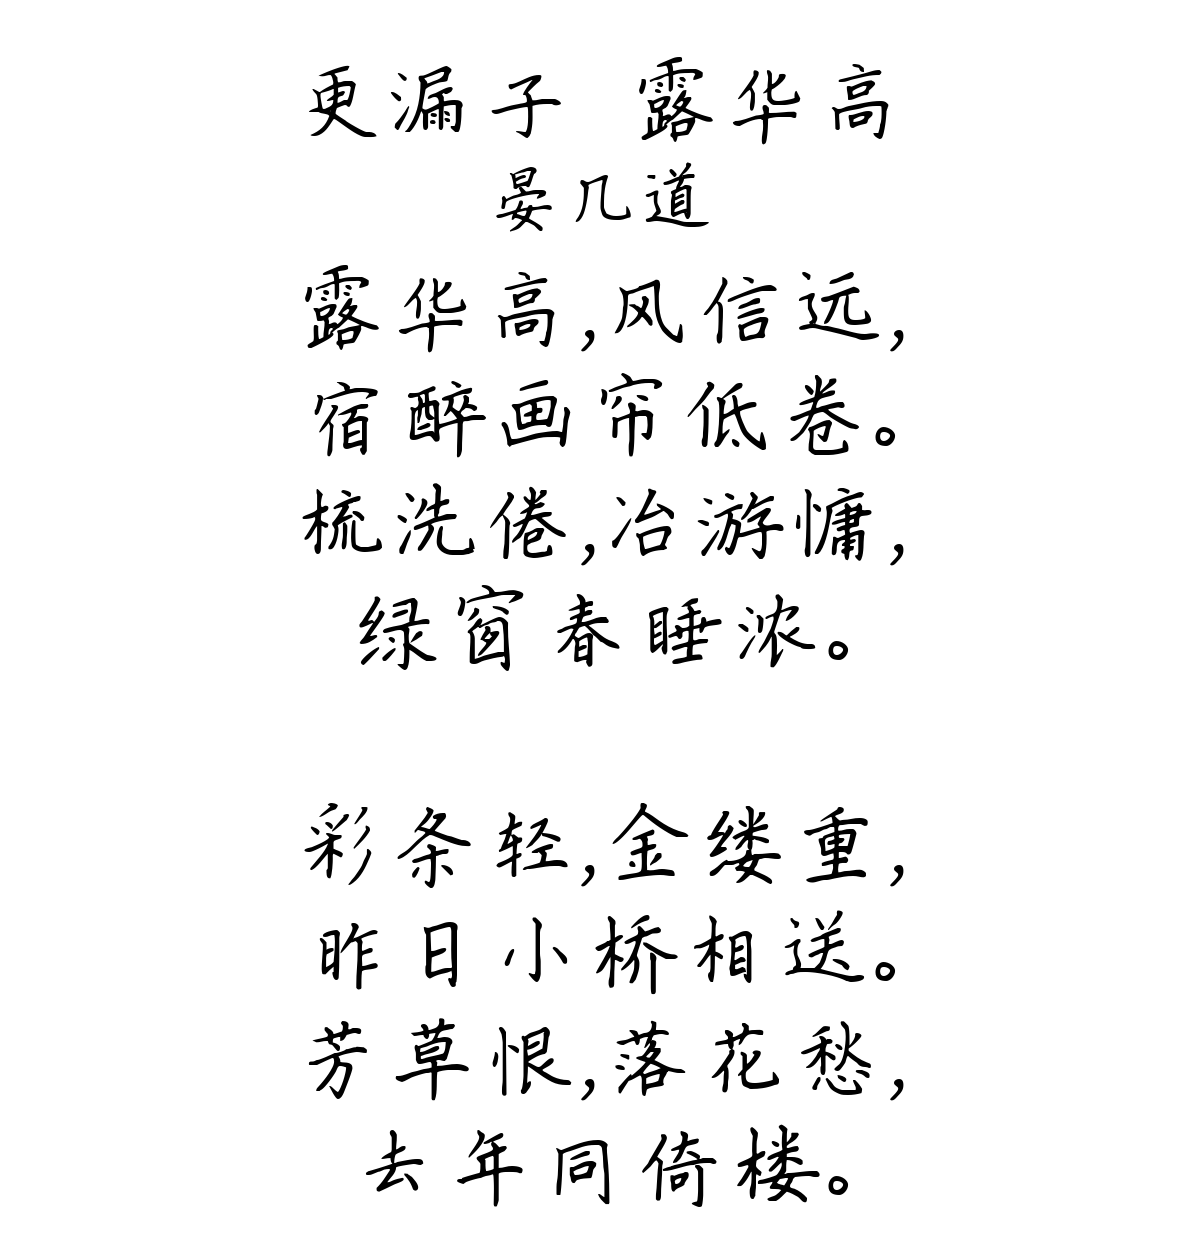 更漏子 露华高
晏几道
露华高,风信远,
宿醉画帘低卷。
梳洗倦,冶游慵,
绿窗春睡浓。
彩条轻,金缕重,
昨日小桥相送。
芳草恨,落花愁,
去年同倚楼。